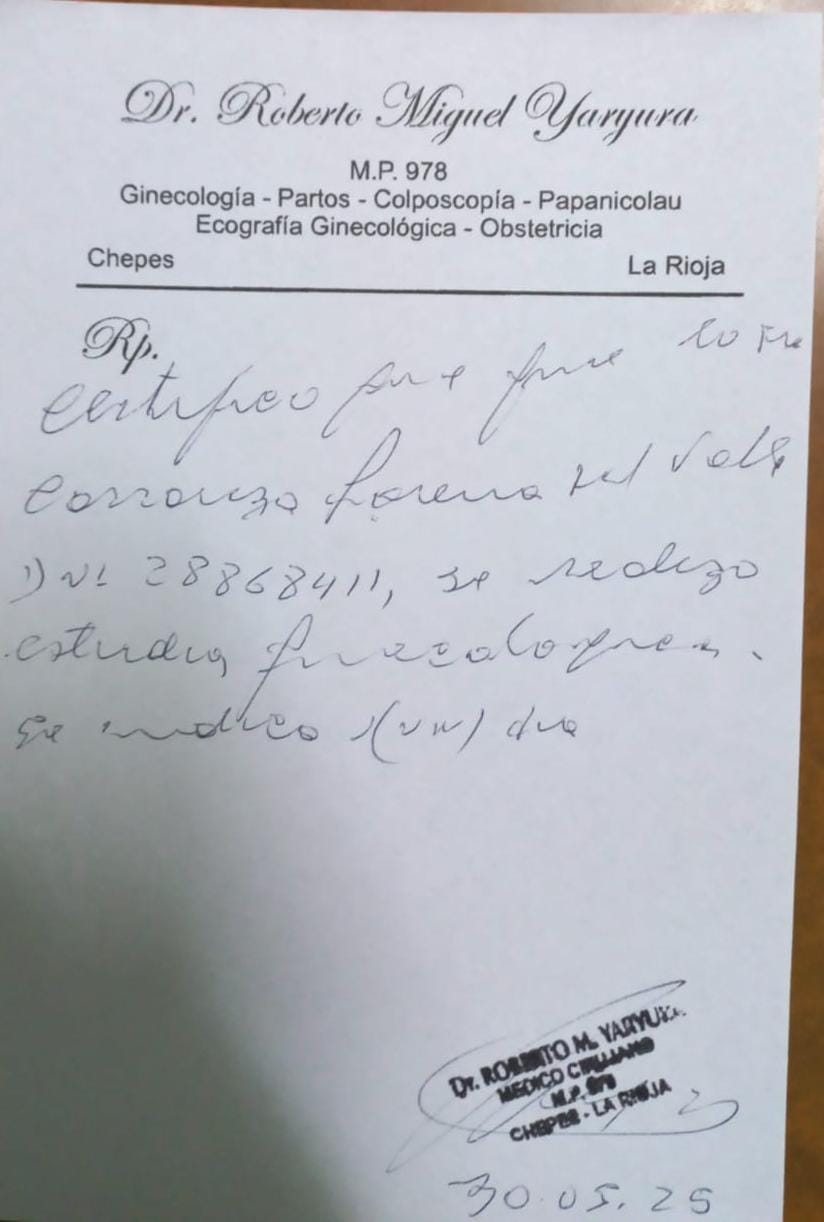 Dr. Roberto Miguel Yaryura
M.P. 978
Ginecología - Partos - Colposcopía - Papanicolau
Ecografía Ginecológica - Obstetricia
Chepes La Rioja
Rp.
Certifico que que
Carranza Lorena del Valle
DNI 28868411, se realizo
estudios ginecologicos.
Se indico 1(un) dia
Dr. ROBERTO M. YARYURA
MEDICO CIRUJANO
M.P. 978
CHEPES - LA RIOJA
30.05.25